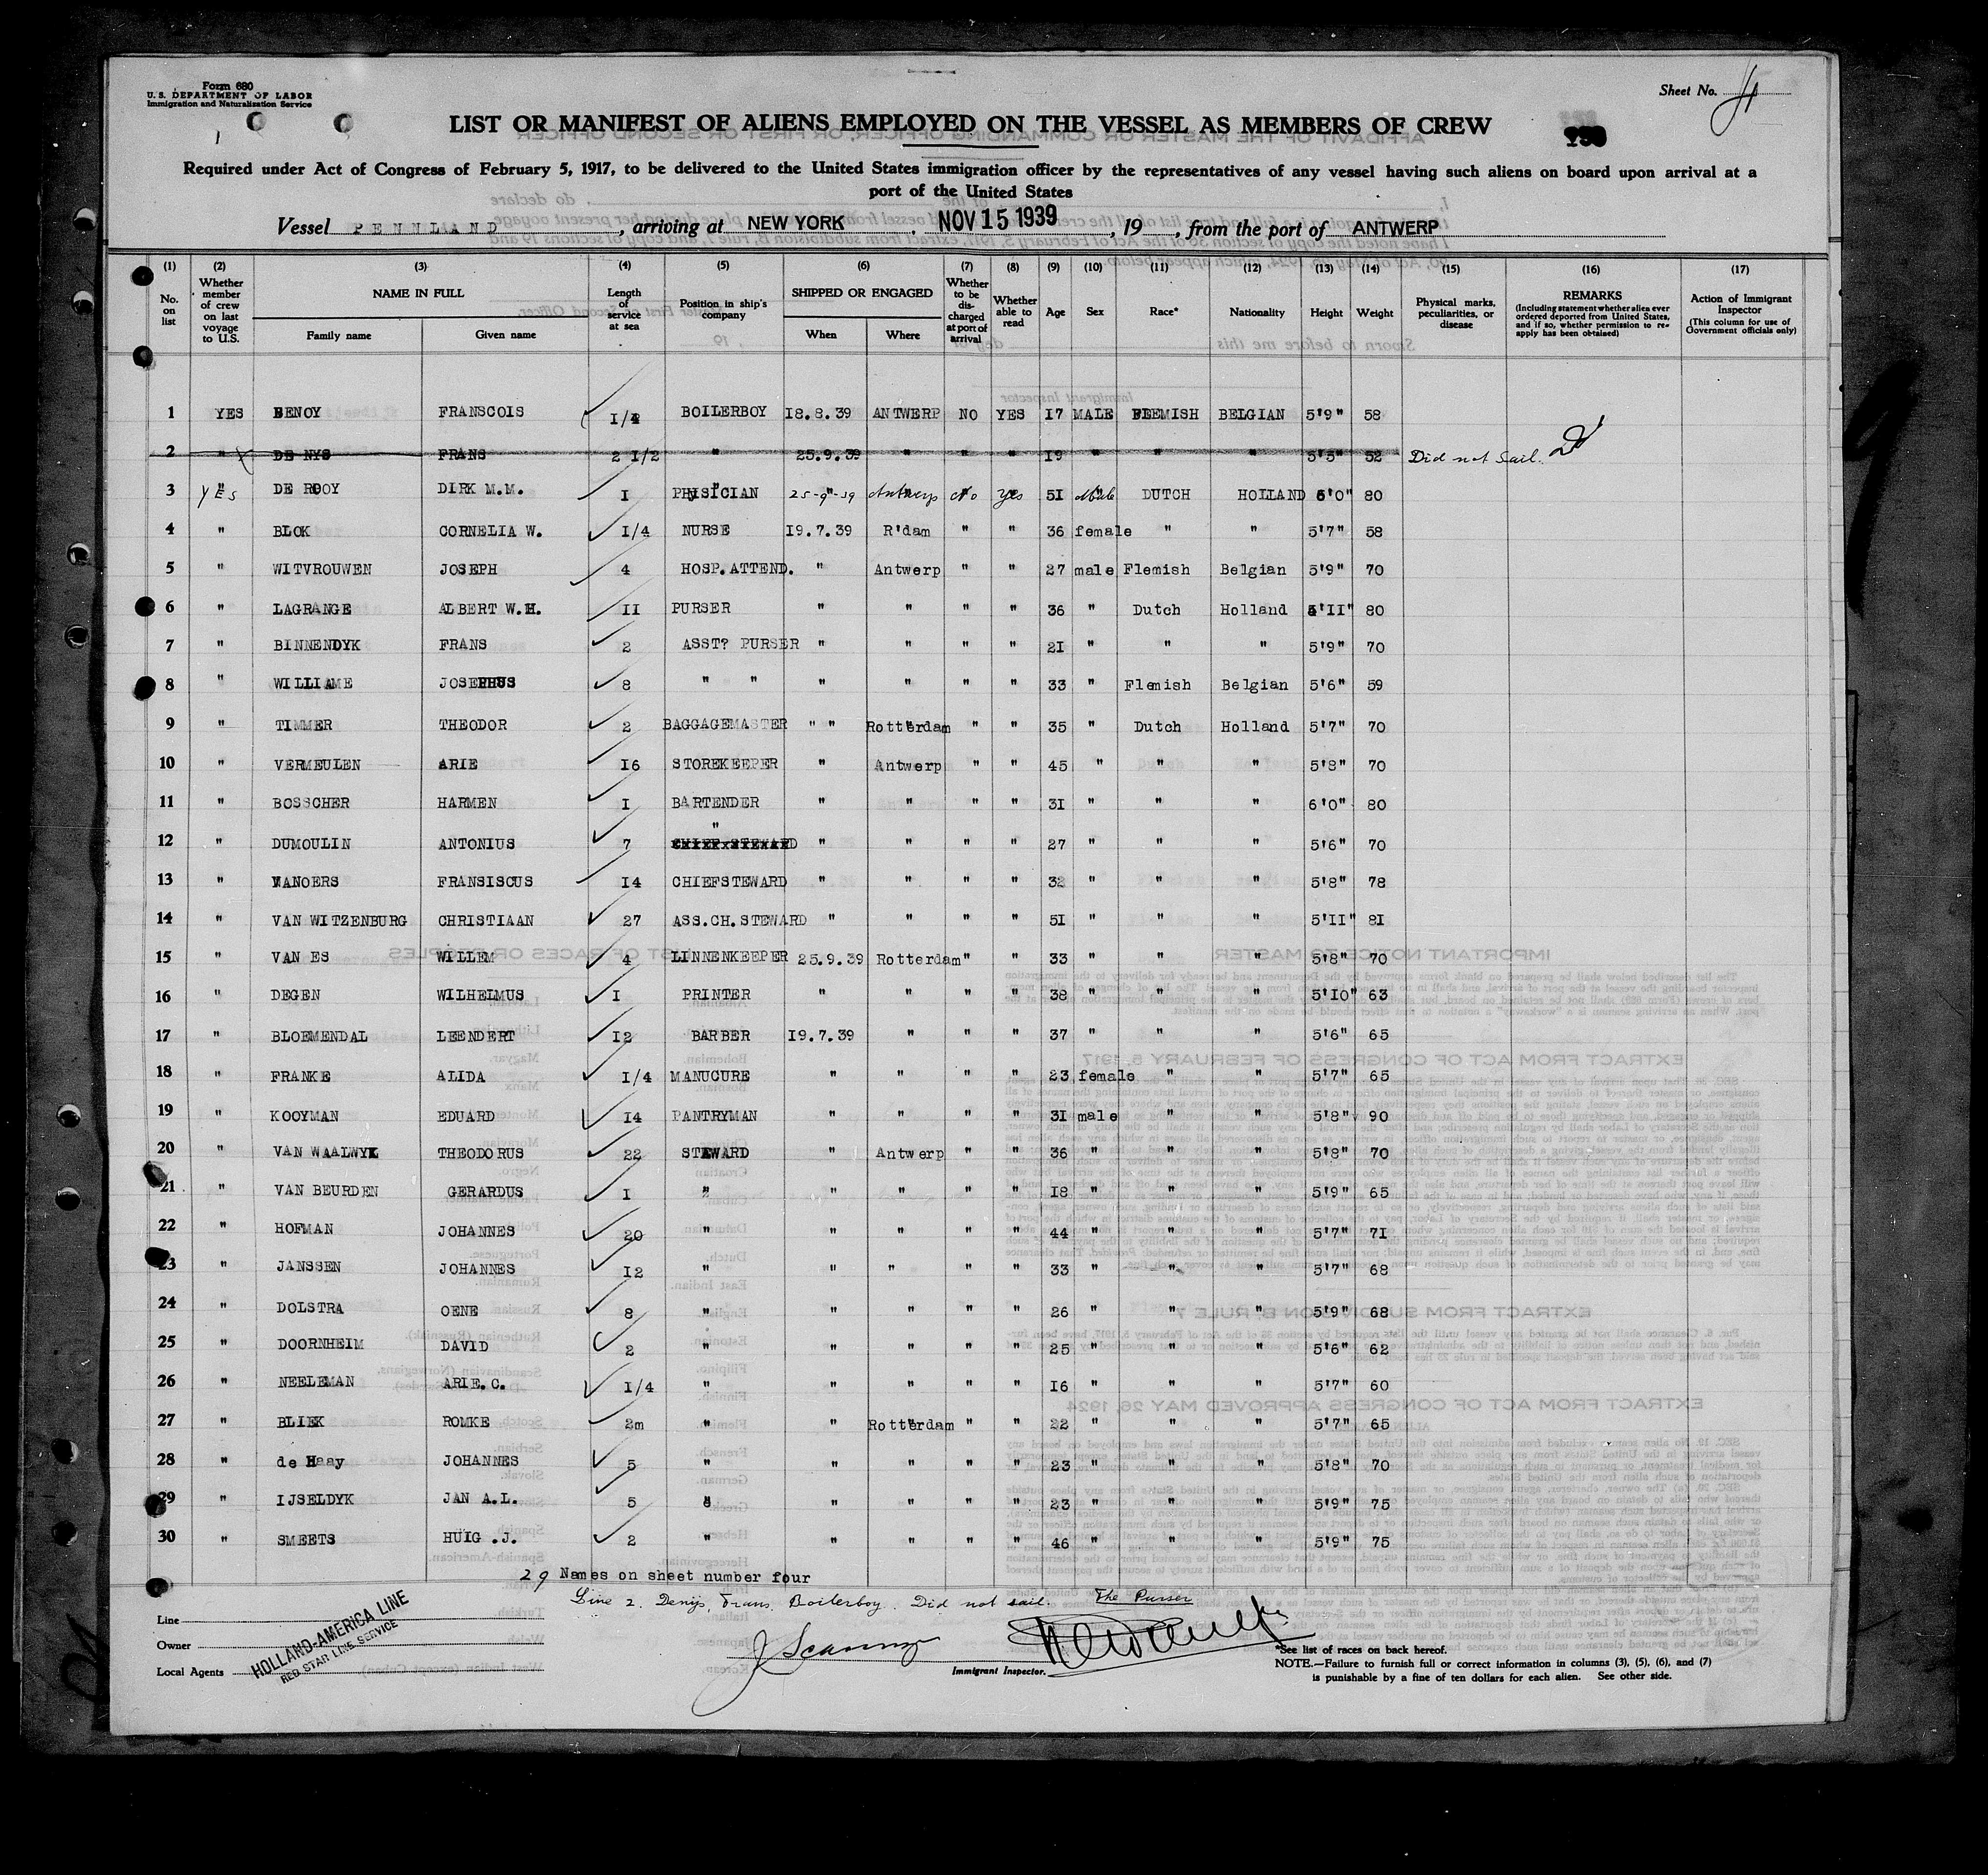 Form 680
U. S. DEPARTMENT OF LABOR
Immigration and Naturalization Service
Sheet No. 4
LIST OR MANIFEST OF ALIENS EMPLOYED ON THE VESSEL AS MEMBERS OF CREW
Required under Act of Congress of February 5, 1917, to be delivered to the United States immigration officer by the representatives of any vessel having such aliens on board upon arrival at a
port of the United States
Vessel PENNLAND, arriving at NEW YORK, NOV 15 1939, 19, from the port of ANTWERP
(1) No. on list (2) Whether member of crew on last voyage to U.S. (3) NAME IN FULL Family name Given name (4) Length of service at sea (5) Position in ship's company (6) SHIPPED OR ENGAGED When Where (7) Whether to be discharged at port of arrival (8) Whether able to read (9) Age (10) Sex (11) Race* (12) Nationality (13) Height (14) Weight (15) Physical marks, peculiarities, or disease (16) REMARKS (Including statement whether alien ever ordered deported from United States, and if so, whether permission to re-apply has been obtained) (17) Action of Immigrant Inspector (This column for use of Government officials only)
1 YES BENOY FRANSCOIS 1/4 BOILERBOY 18.8.39 ANTWERP NO YES 17 MALE FLEMISH BELGIAN 5'9" 58
2 " DE NYS FRANS 2 1/2 " 25.9.39 " " " 19 " " " 5'5" 52 Did not sail.
3 YES DE ROOY DIRK M.M. 1 PHISICIAN 25-9-39 Antwerp No Yes 51 Male DUTCH HOLLAND 6'0" 80
4 " BLOK CORNELIA W. 1/4 NURSE 19.7.39 R'dam " " 36 female " " 5'7" 58
5 " WITVROUWEN JOSEPH 4 HOSP.ATTEND. " Antwerp " " 27 male Flemish Belgian 5'9" 70
6 " LAGRANGE ALBERT W.H. 11 PURSER " " " " 36 " Dutch Holland 5'11" 80
7 " BINNENDYK FRANS 2 ASST? PURSER " " " " 21 " " " 5'9" 70
8 " WILLIAME JOSEPHUS 8 " " " " " " 33 " Flemish Belgian 5'6" 59
9 " TIMMER THEODOR 2 BAGGAGEMASTER " " Rotterdam " " 35 " Dutch Holland 5'7" 70
10 " VERMEULEN ARIE 16 STOREKEEPER " Antwerp " " 45 " " " 5'8" 70
11 " BOSSCHER HARMEN 1 BARTENDER " " " " 31 " " " 6'0" 80
12 " DUMOULIN ANTONIUS 7 " " " " " 27 " " " 5'6" 70
13 " VANOERS FRANSISCUS 14 CHIEFSTEWARD " " " " 32 " " " 5'8" 78
14 " VAN WITZENBURG CHRISTIAAN 27 ASS.CH.STEWARD " " " " 51 " " " 5'11" 81
15 " VAN ES WILLEM 4 LINNENKEEPER 25.9.39 Rotterdam " " 33 " " " 5'8" 70
16 " DEGEN WILHELMUS 1 PRINTER " " " " 38 " " " 5'10" 63
17 " BLOEMENDAL LEENDERT 12 BARBER 19.7.39 " " " 37 " " " 5'6" 65
18 " FRANKE ALIDA 1/4 MANUCURE " " " " 23 female " " 5'7" 65
19 " KOOYMAN EDUARD 14 PANTRYMAN " " " " 31 male " " 5'8" 90
20 " VAN WAALWYK THEODORUS 22 STEWARD " Antwerp " " 36 " " " 5'8" 70
21 " VAN BEURDEN GERARDUS 1 " " " " " 18 " " " 5'9" 65
22 " HOFMAN JOHANNES 20 " " " " " 44 " " " 5'7" 71
23 " JANSSEN JOHANNES 12 " " " " " 33 " " " 5'7" 68
24 " DOLSTRA OENE 8 " " " " " 26 " " " 5'9" 68
25 " DOORNHEIM DAVID 2 " " " " " 25 " " " 5'6" 62
26 " NEELEMAN ARIE.C. 1/4 " " " " " 16 " " " 5'7" 60
27 " BLIEK ROMKE 2m " " Rotterdam " " 22 " " " 5'7" 65
28 " de Haay JOHANNES 5 " " " " " 23 " " " 5'8" 70
29 " IJSELDYK JAN A.L. 5 " " " " " 23 " " " 5'9" 75
30 " SMEETS HUIG .J. 2 " " " " " 46 " " " 5'9" 75
29 Names on sheet number four
Line 2. Denijs, Frans. Boilerboy. Did not sail. The Purser
Line
Owner
Local Agents
HOLLAND-AMERICA LINE
RED STAR LINE SERVICE
Immigrant Inspector.
*See list of races on back hereof.
NOTE.—Failure to furnish full or correct information in columns (3), (5), (6), and (7)
is punishable by a fine of ten dollars for each alien. See other side.